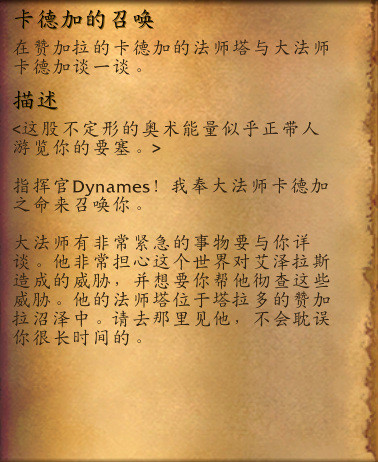 卡德加的召唤
在赞加拉的卡德加的法师塔与大法师
卡德加谈一谈。
描述
<这股不定形的奥术能量似乎正带人
游览你的要塞。>
指挥官Dynames！我奉大法师卡德加
之命来召唤你。
大法师有非常紧急的事物要与你详
谈。他非常担心这个世界对艾泽拉斯
造成的威胁，并想要你帮他彻查这些
威胁。他的法师塔位于塔拉多的赞加
拉沼泽中。请去那里见他，不会耽误
你很长时间的。